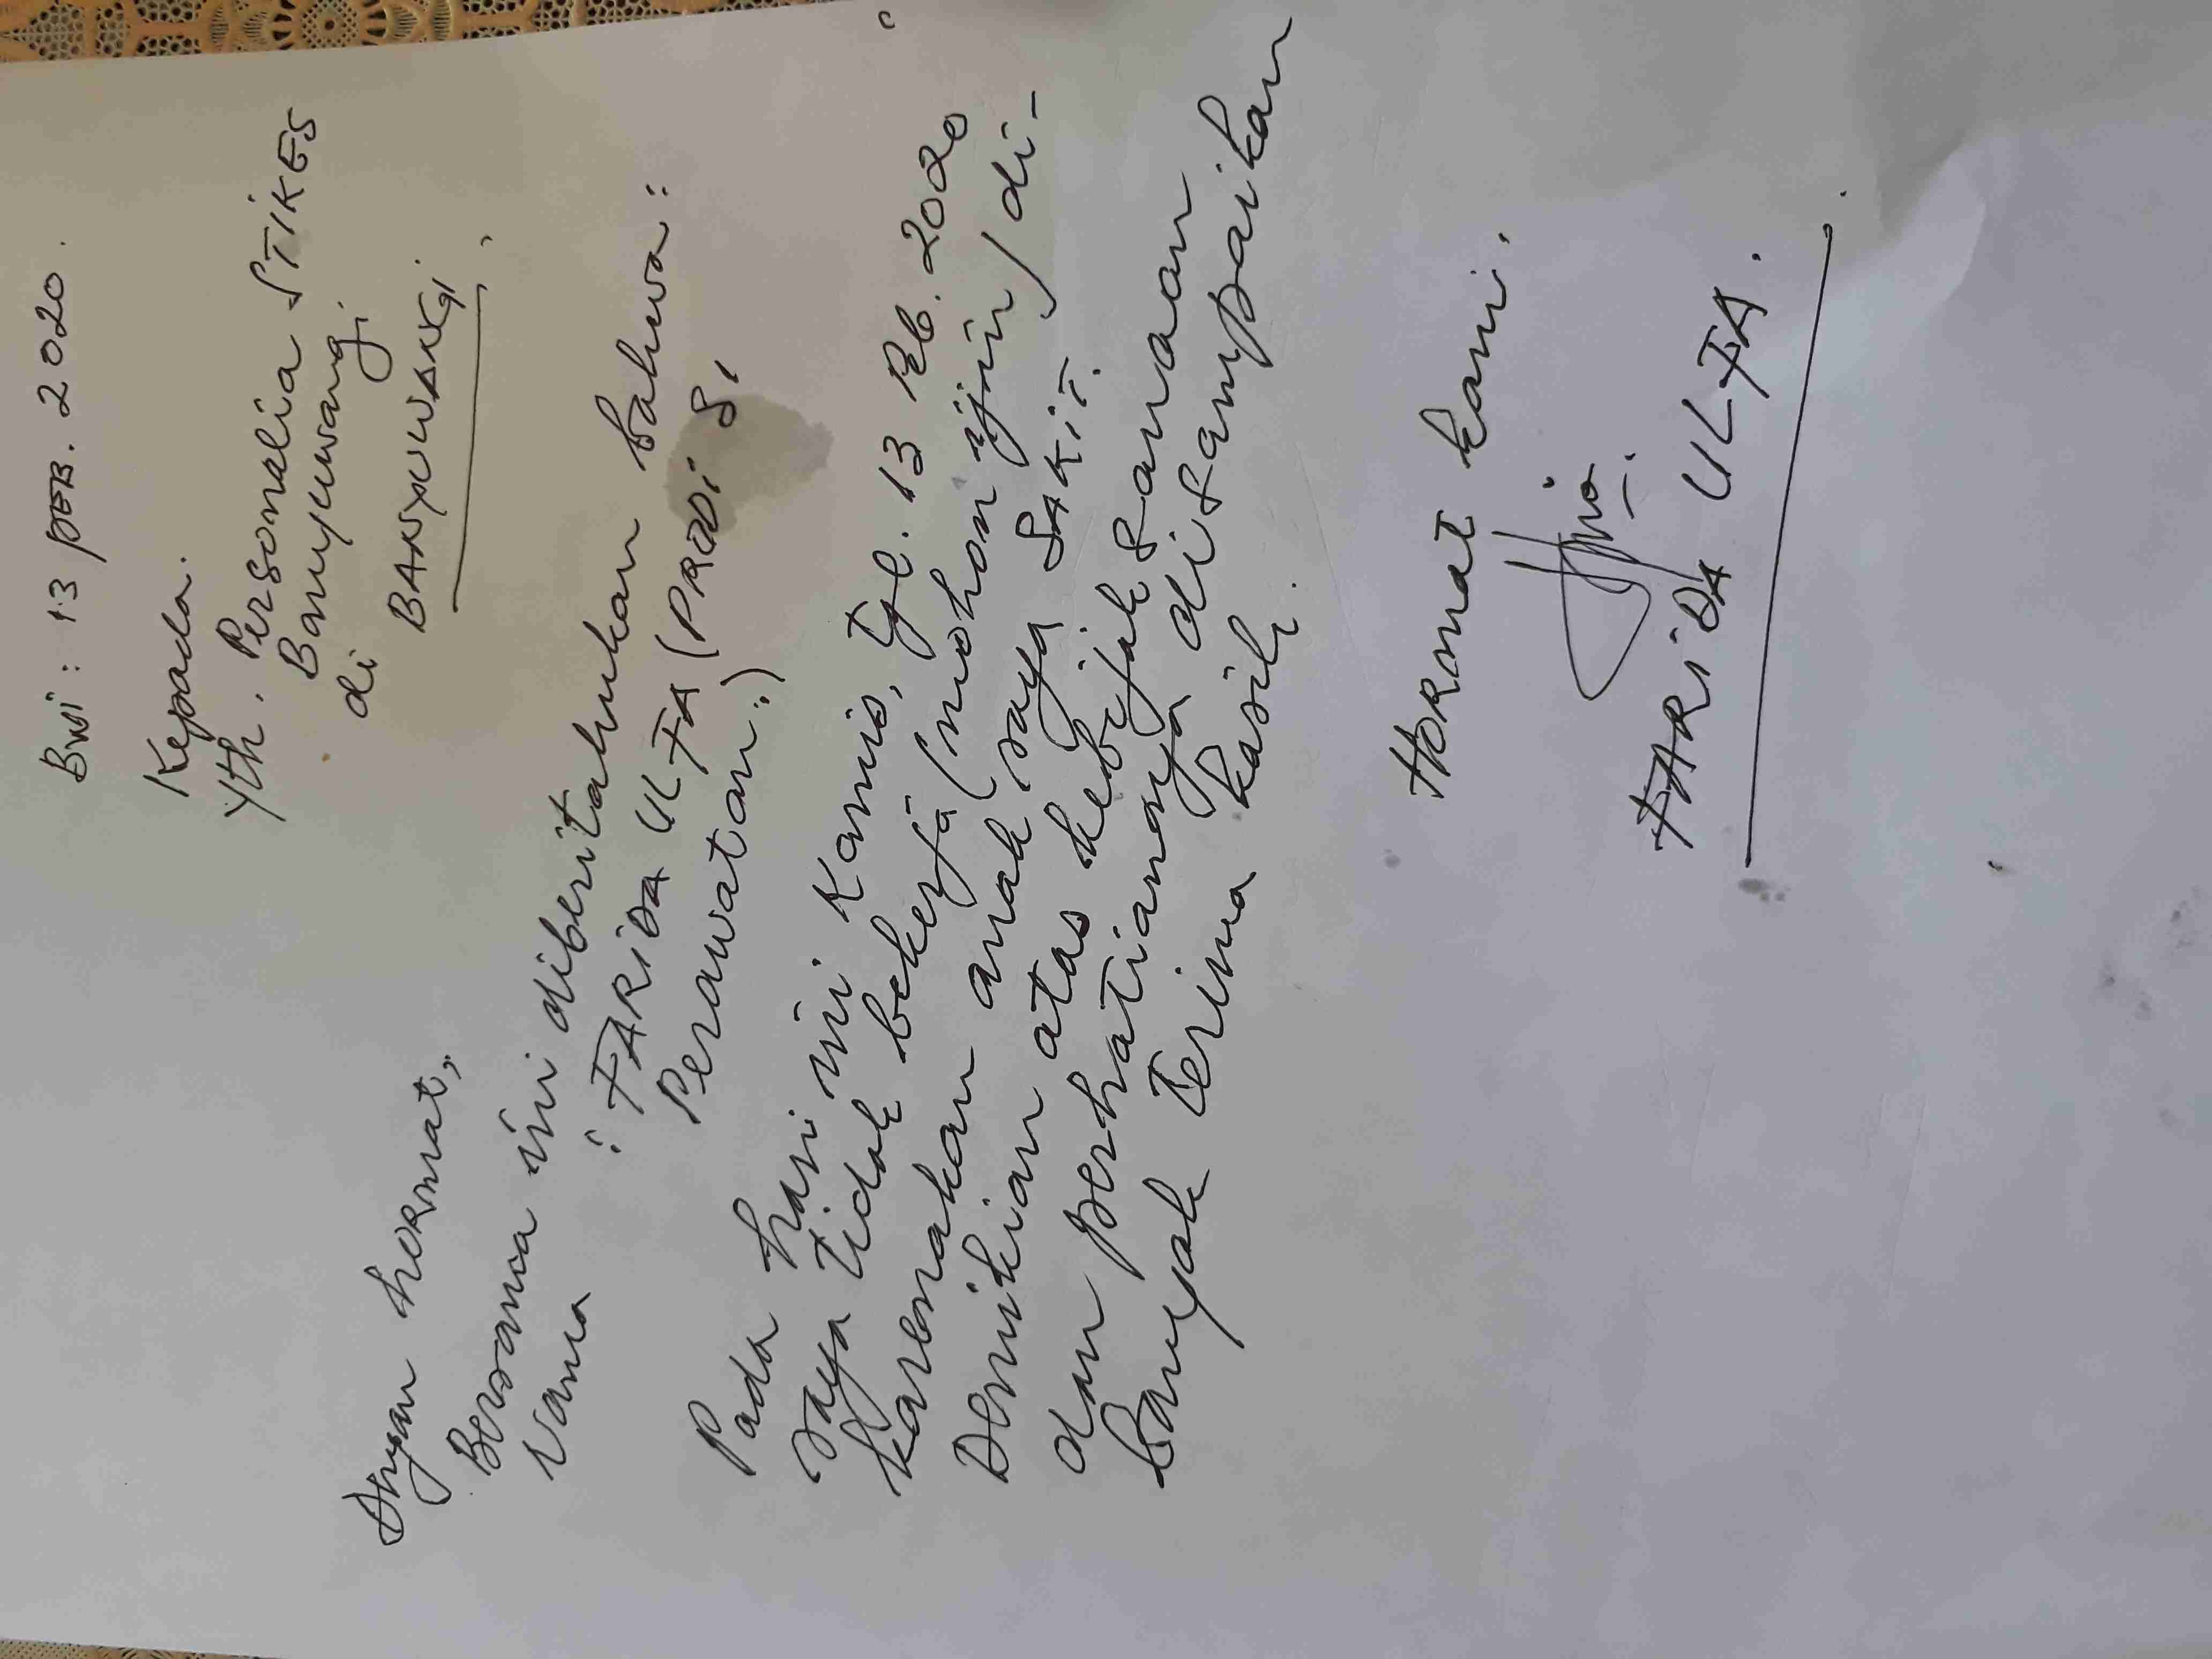 Bwi : 13 PEB. 2020.
Kepada.
Yth. Personalia STIKES
Banyuwangi
di
BANYUWANGI.
Dengan hormat,
Bersama ini diberitahukan bahwa :
Nama : FARIDA ULFA (PRODI S1
Perawatan.)
Pada hari ini Kamis, tgl. 13 Peb. 2020
saya tidak bekerja (mohon ijin) di-
karenakan anak saya SAKIT.
Demikian atas kebijaksanaan
dan perhatiannya disampaikan
banyak terima kasih.
Hormat kami.
FARIDA ULFA.